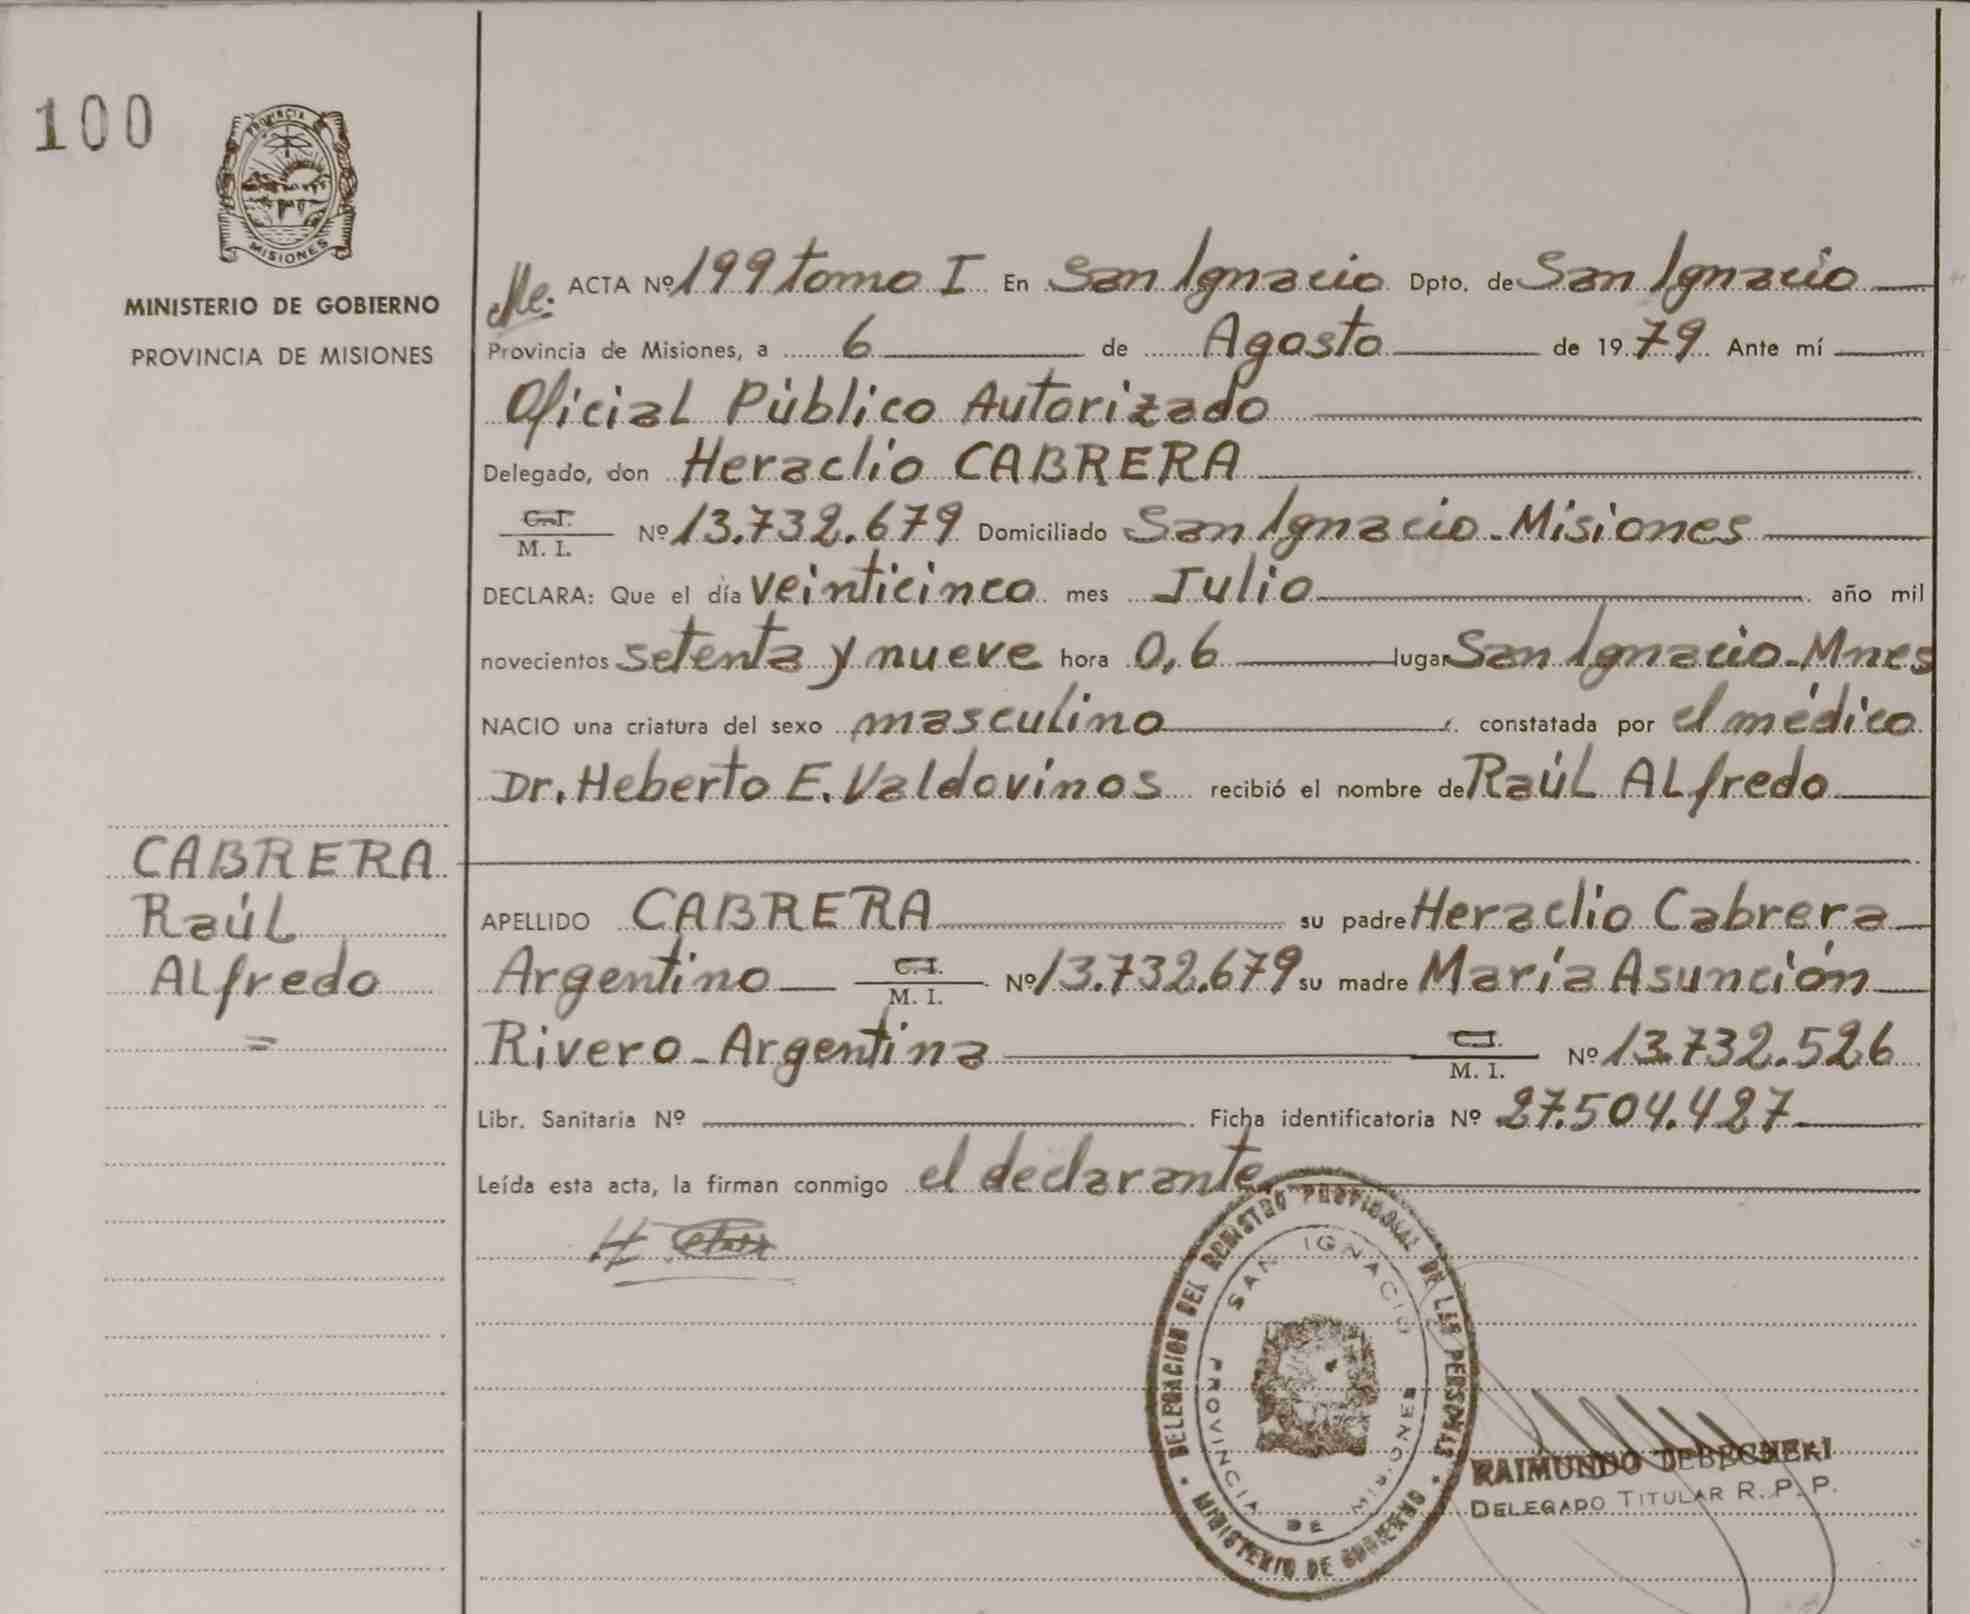 100
PROVINCIA DE
MISIONES
MINISTERIO DE GOBIERNO
PROVINCIA DE MISIONES
ACTA Nº 199 tomo I En San Ignacio Dpto. de San Ignacio
Provincia de Misiones, a 6 de Agosto de 1979 Ante mí
Oficial Público Autorizado
Delegado, don Heraclio CABRERA
C.I.
M. I. Nº 13.732.679 Domiciliado San Ignacio - Misiones
DECLARA: Que el día veinticinco mes Julio año mil
novecientos setenta y nueve hora 0,6 lugar San Ignacio - Mnes
NACIO una criatura del sexo masculino constatada por el médico
Dr. Heberto E. Valdovinos recibió el nombre de Raúl ALfredo
CABRERA
Raúl
ALfredo
APELLIDO CABRERA su padre Heraclio Cabrera
Argentino C.I. M. I. Nº 13.732.679 su madre María Asunción
Rivero - Argentina C.I. M. I. Nº 13.732.526
Libr. Sanitaria Nº Ficha identificatoria Nº 27.504.427
Leída esta acta, la firman conmigo el declarante
DELEGACION DEL REGISTRO PROVINCIAL DE LAS PERSONAS
SAN IGNACIO
PROVINCIA DE MISIONES
MINISTERIO DE GOBIERNO
RAIMUNDO
DELEGADO TITULAR R. P. P.